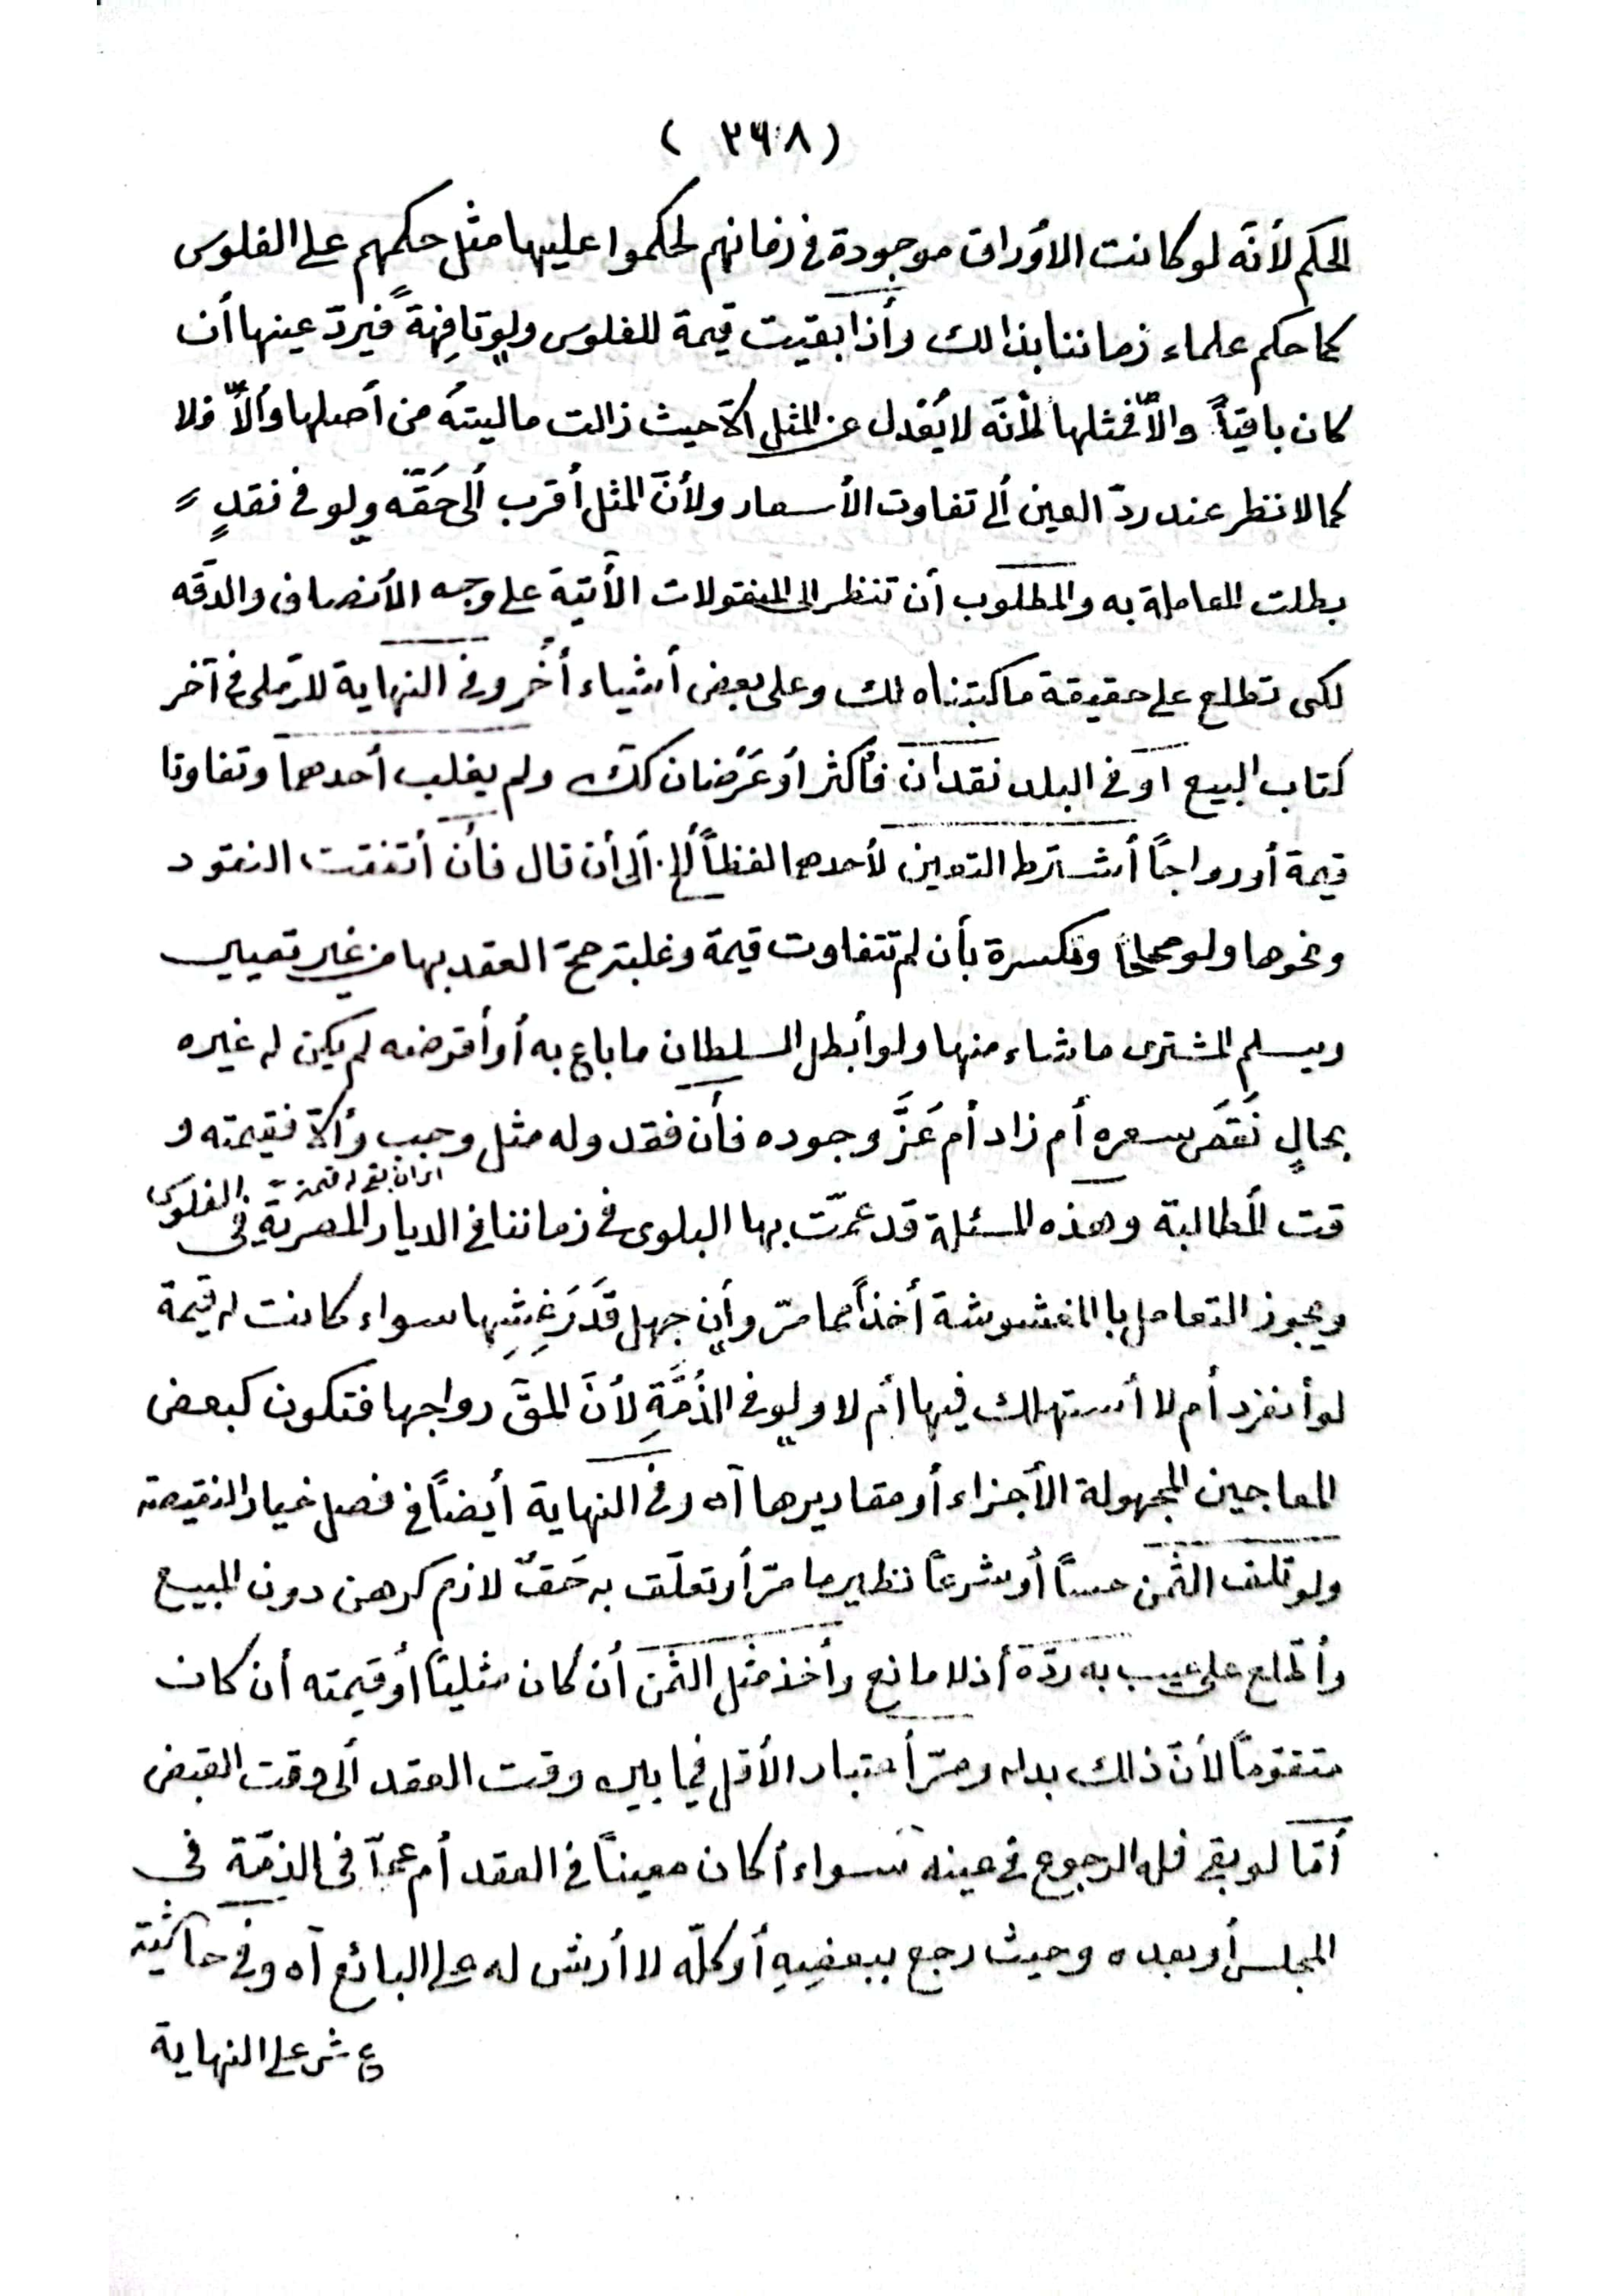 ( ٢٦٨ )
الحكم لأنّه لو كانت الأوراق موجودة في زمانهم لحكموا عليها مثل حكمهم على الفلوس
كما حكم علماء زماننا بذالك وأذا بقيت قيمة للفلوس ولو تافِهةً فيردّ عينها أن
كان باقياً والاّ فمثلها لأنّه لا يُعْدل عن المثل الاّ حيث زالت ماليتهُ من أصلها وألاّ فلا
كما لا نظر عند ردّ العين ألى تفاوت الأسعار ولأنّ المثل أقرب ألى حَقّه ولو في نقدٍ
بطلت المعاملة به والمطلوب أن تنظر الى المنقولات الآتية على وجه الأنصاف والدقّه
لكى تطلع على حقيقة ما كبتناه لك وعلى بعض أشياء أُخر وفى النهاية للرّملى في آخر
كتاب البيع اوْ فى البلد نقدان فأكثر أوْ عَرْضان كك ولم يغلب أحدهما وتفاوتا
قيمة أو رواجاً أشترط التعيين لأحدهما لفظاً ألخ ألى أن قال فأن أتفقت النقود
ونحوها ولو صحاحاً ومكسرة بأن لم تتفاوت قيمة وغلبة صحّ العقد بها من غير تعيين
ويسلم المشترى ما شاء منها ولو أبطل السلطان ما باع به أو أقرضه لم يكن له غيره
بحالٍ نَقَصَ سعره أم زاد أم عَزَّ وجوده فأن فقد وله مثل وجب وألاّ فقيمته و
قت المطالبة وهذه المسئلة قد عمّت بها البلوى في زماننا في الديار المصرية في الفلوس
اى ان بقى له قيمة
ويجوز التعامل با المغشوشة أخذاً مما مرّ وأن جهل قَدَرَ غِشِهِا سواء كانت له قيمة
لو أنفرد أم لا أستهلك فيها أم لا ولو في الذُمَّةِ لأنَّ المقَ رواجها فتكون كبعض
المعاجين المجهولة الأجزاء أو مقاديرها آه وفى النهاية أيضاً في فصل خيار النقيصة
ولو تلف الثمن حساً أو شرعاً نظير ما مرّ أو تعلّق به حَقٌ لازم كرهن دون المبيع
وأطّلع على عيب به ردّه أذ لا مانع وأخذ مثل الثمن أن كان مثلياً أو قيمته أن كان
متقوماً لأنّ ذلك بدله ومرّ أعتبار الأقل فيما بين وقت العقد ألى وقت القبض
أمّا لو بقى فله الرجوع في عينه سواء أكان معيناً في العقد أم عمّا في الذمّة في
المجلس أو بعده وحيث رجع ببعضِهِ أو كلّه لا أرش له على البائع آه وفى حاشية
ع ش على النهاية